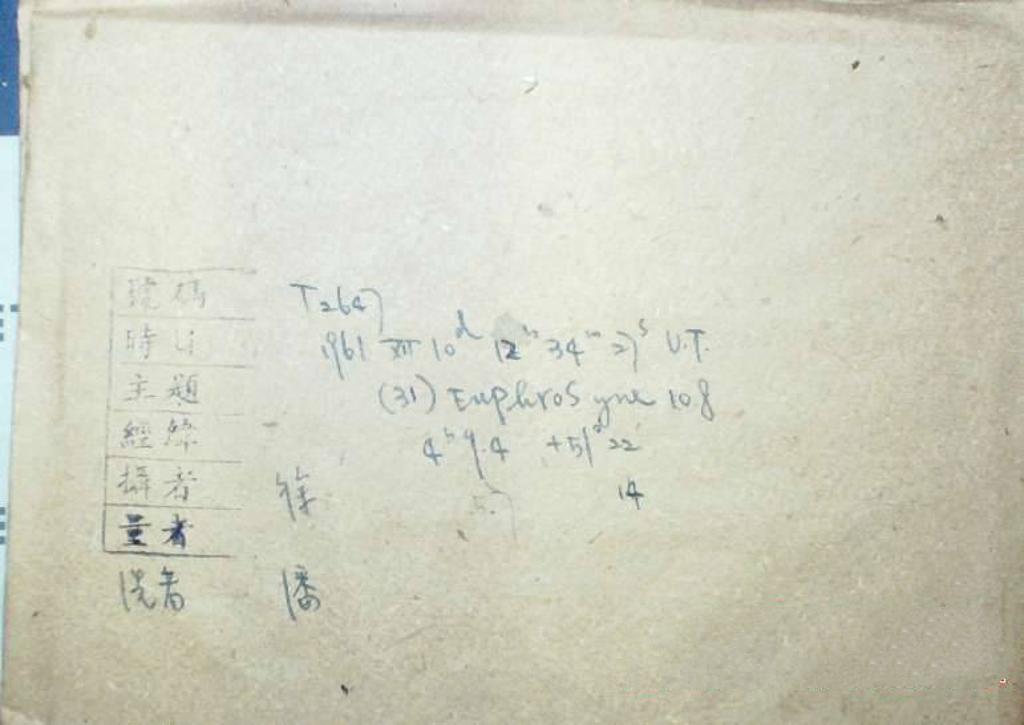 號碼 T2647
時日 1961 XII 10d 12h 34m 27s U.T.
主題 (31) Euphrosyne 108
經緯 4h 9.4 +51° 22
攝者 徐 14
量者
洗者 潘